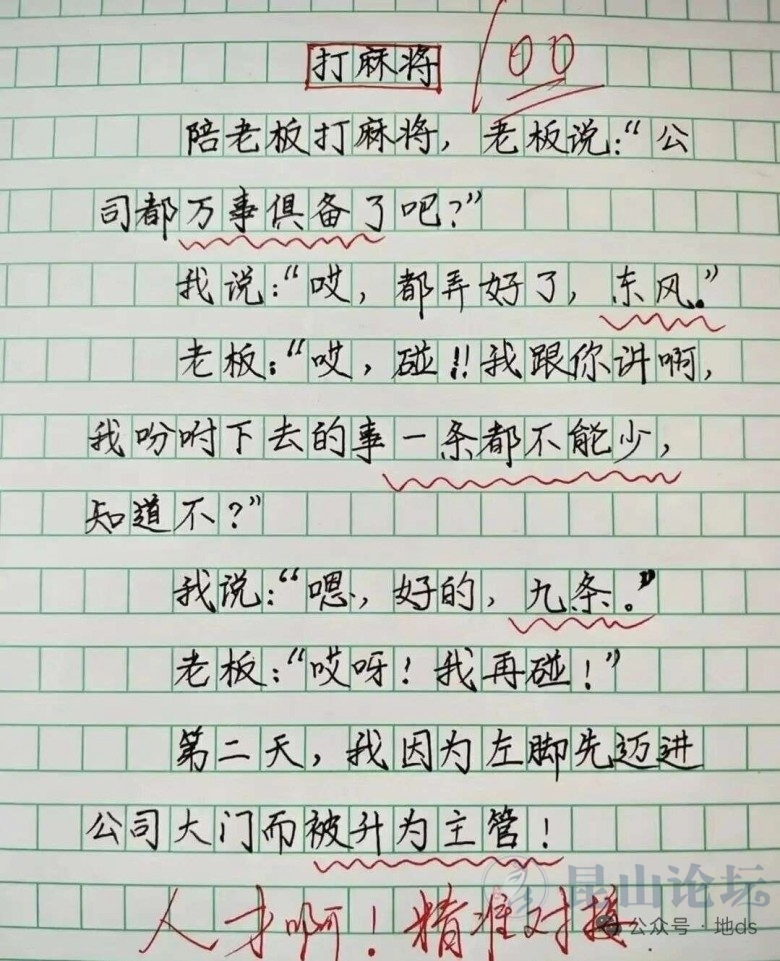 打麻将
100
陪老板打麻将，老板说：“公
司都万事俱备了吧？”
我说：“哎，都弄好了，东风。”
老板：“哎，碰！！我跟你讲啊，
我吩咐下去的事一条都不能少，
知道不？”
我说：“嗯，好的，九条。”
老板：“哎呀！我再碰！”
第二天，我因为左脚先迈进
公司大门而被升为主管！
人才啊！精准对接
昆山论坛
公众号·地ds